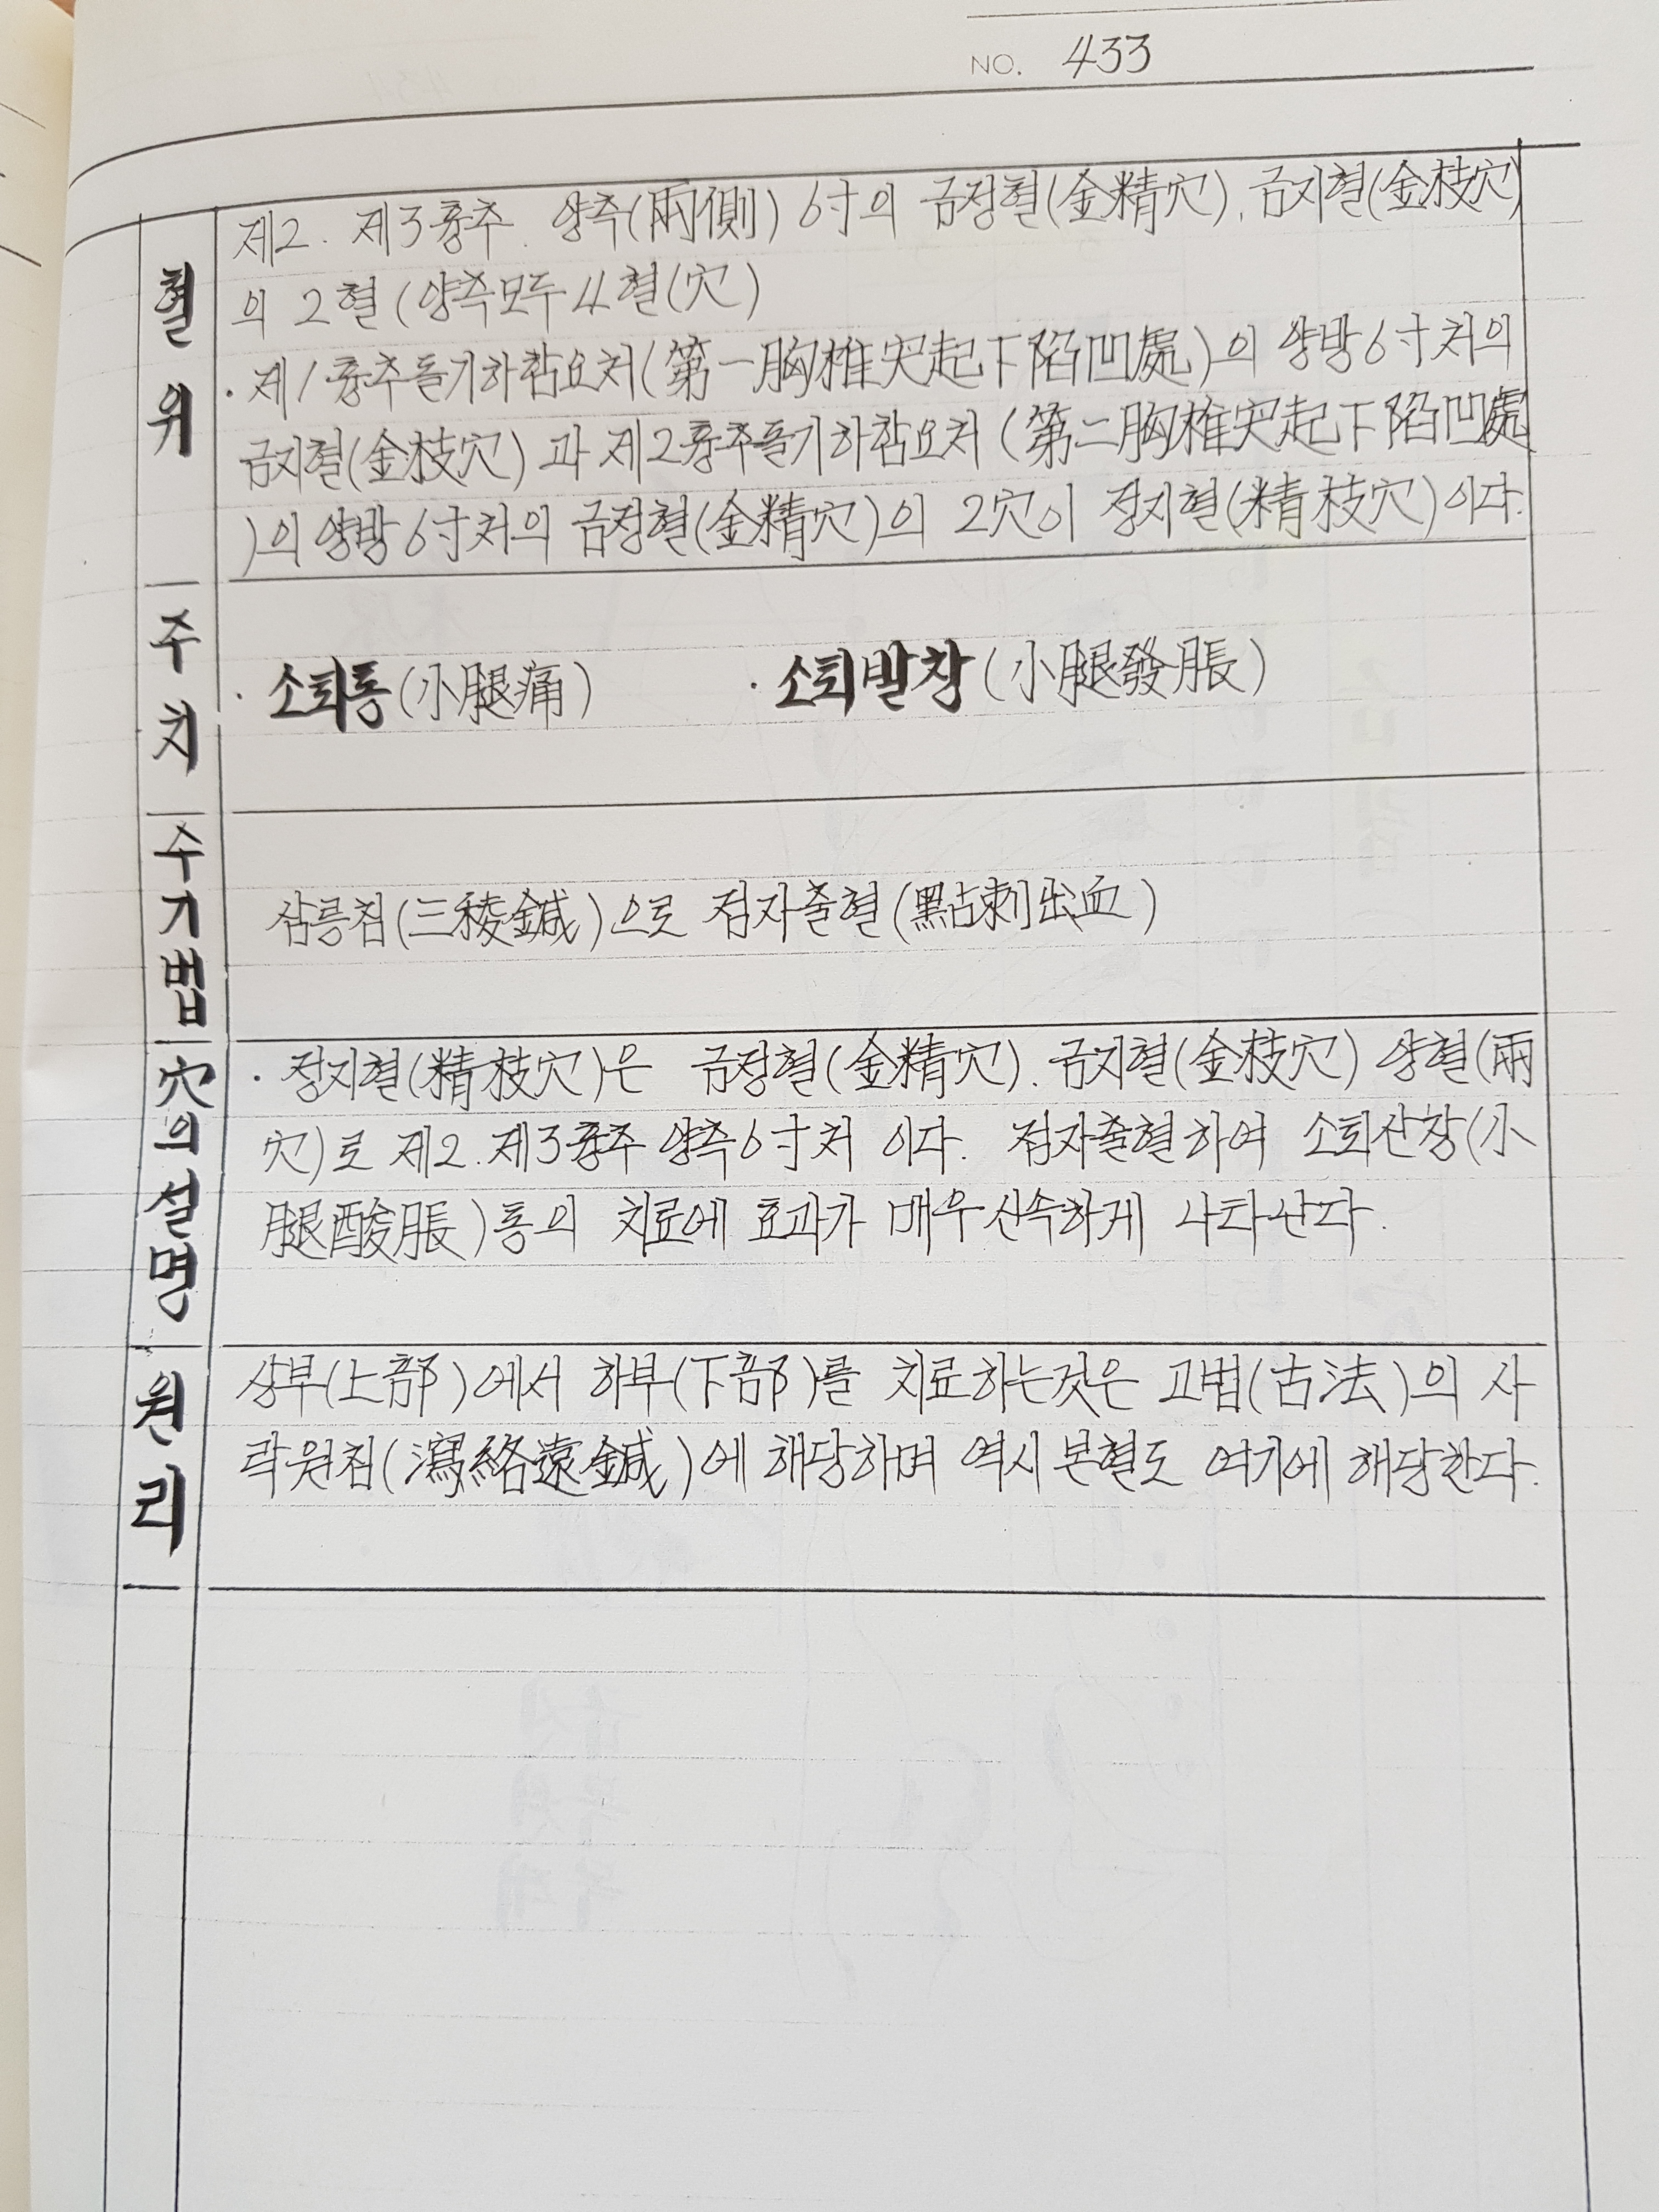 NO. 433
혈위
제2. 제3흉추. 양측(兩側) 6寸의 금정혈(金精穴), 금지혈(金枝穴)
의 2혈 (양측모두 4혈(穴)
· 제1흉추돌기하함요처(第一胸椎突起下陷凹處)의 양방6寸처의
금지혈(金枝穴) 과 제2흉추돌기하함요처 (第二胸椎突起下陷凹處
)의 양방 6寸처의 금정혈(金精穴)의 2穴이 정지혈(精枝穴)이다.
주치
· 소퇴통(小腿痛) · 소퇴발창(小腿發脹)
수기법
삼릉침(三稜鍼)으로 점자출혈(點刺出血)
穴의설명
· 정지혈(精枝穴)은 금정혈(金精穴). 금지혈(金枝穴) 양혈(兩
穴)로 제2. 제3흉추 양측6寸처 이다. 점자출혈하여 소퇴산창(小
腿酸脹)통의 치료에 효과가 매우신속하게 나타난다.
원리
상부(上部)에서 하부(下部)를 치료하는것은 고법(古法)의 사
락원침(瀉絡遠鍼)에 해당하며 역시 본혈도 여기에 해당한다.